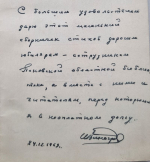 С большим удовольствием
дарю этот маленький
сборничек стихов дорогим
юбилярам - сотрудникам
Псковской областной библио-
теки, а вместе с ними и
читателям, перед которыми
я в неоплатном долгу.